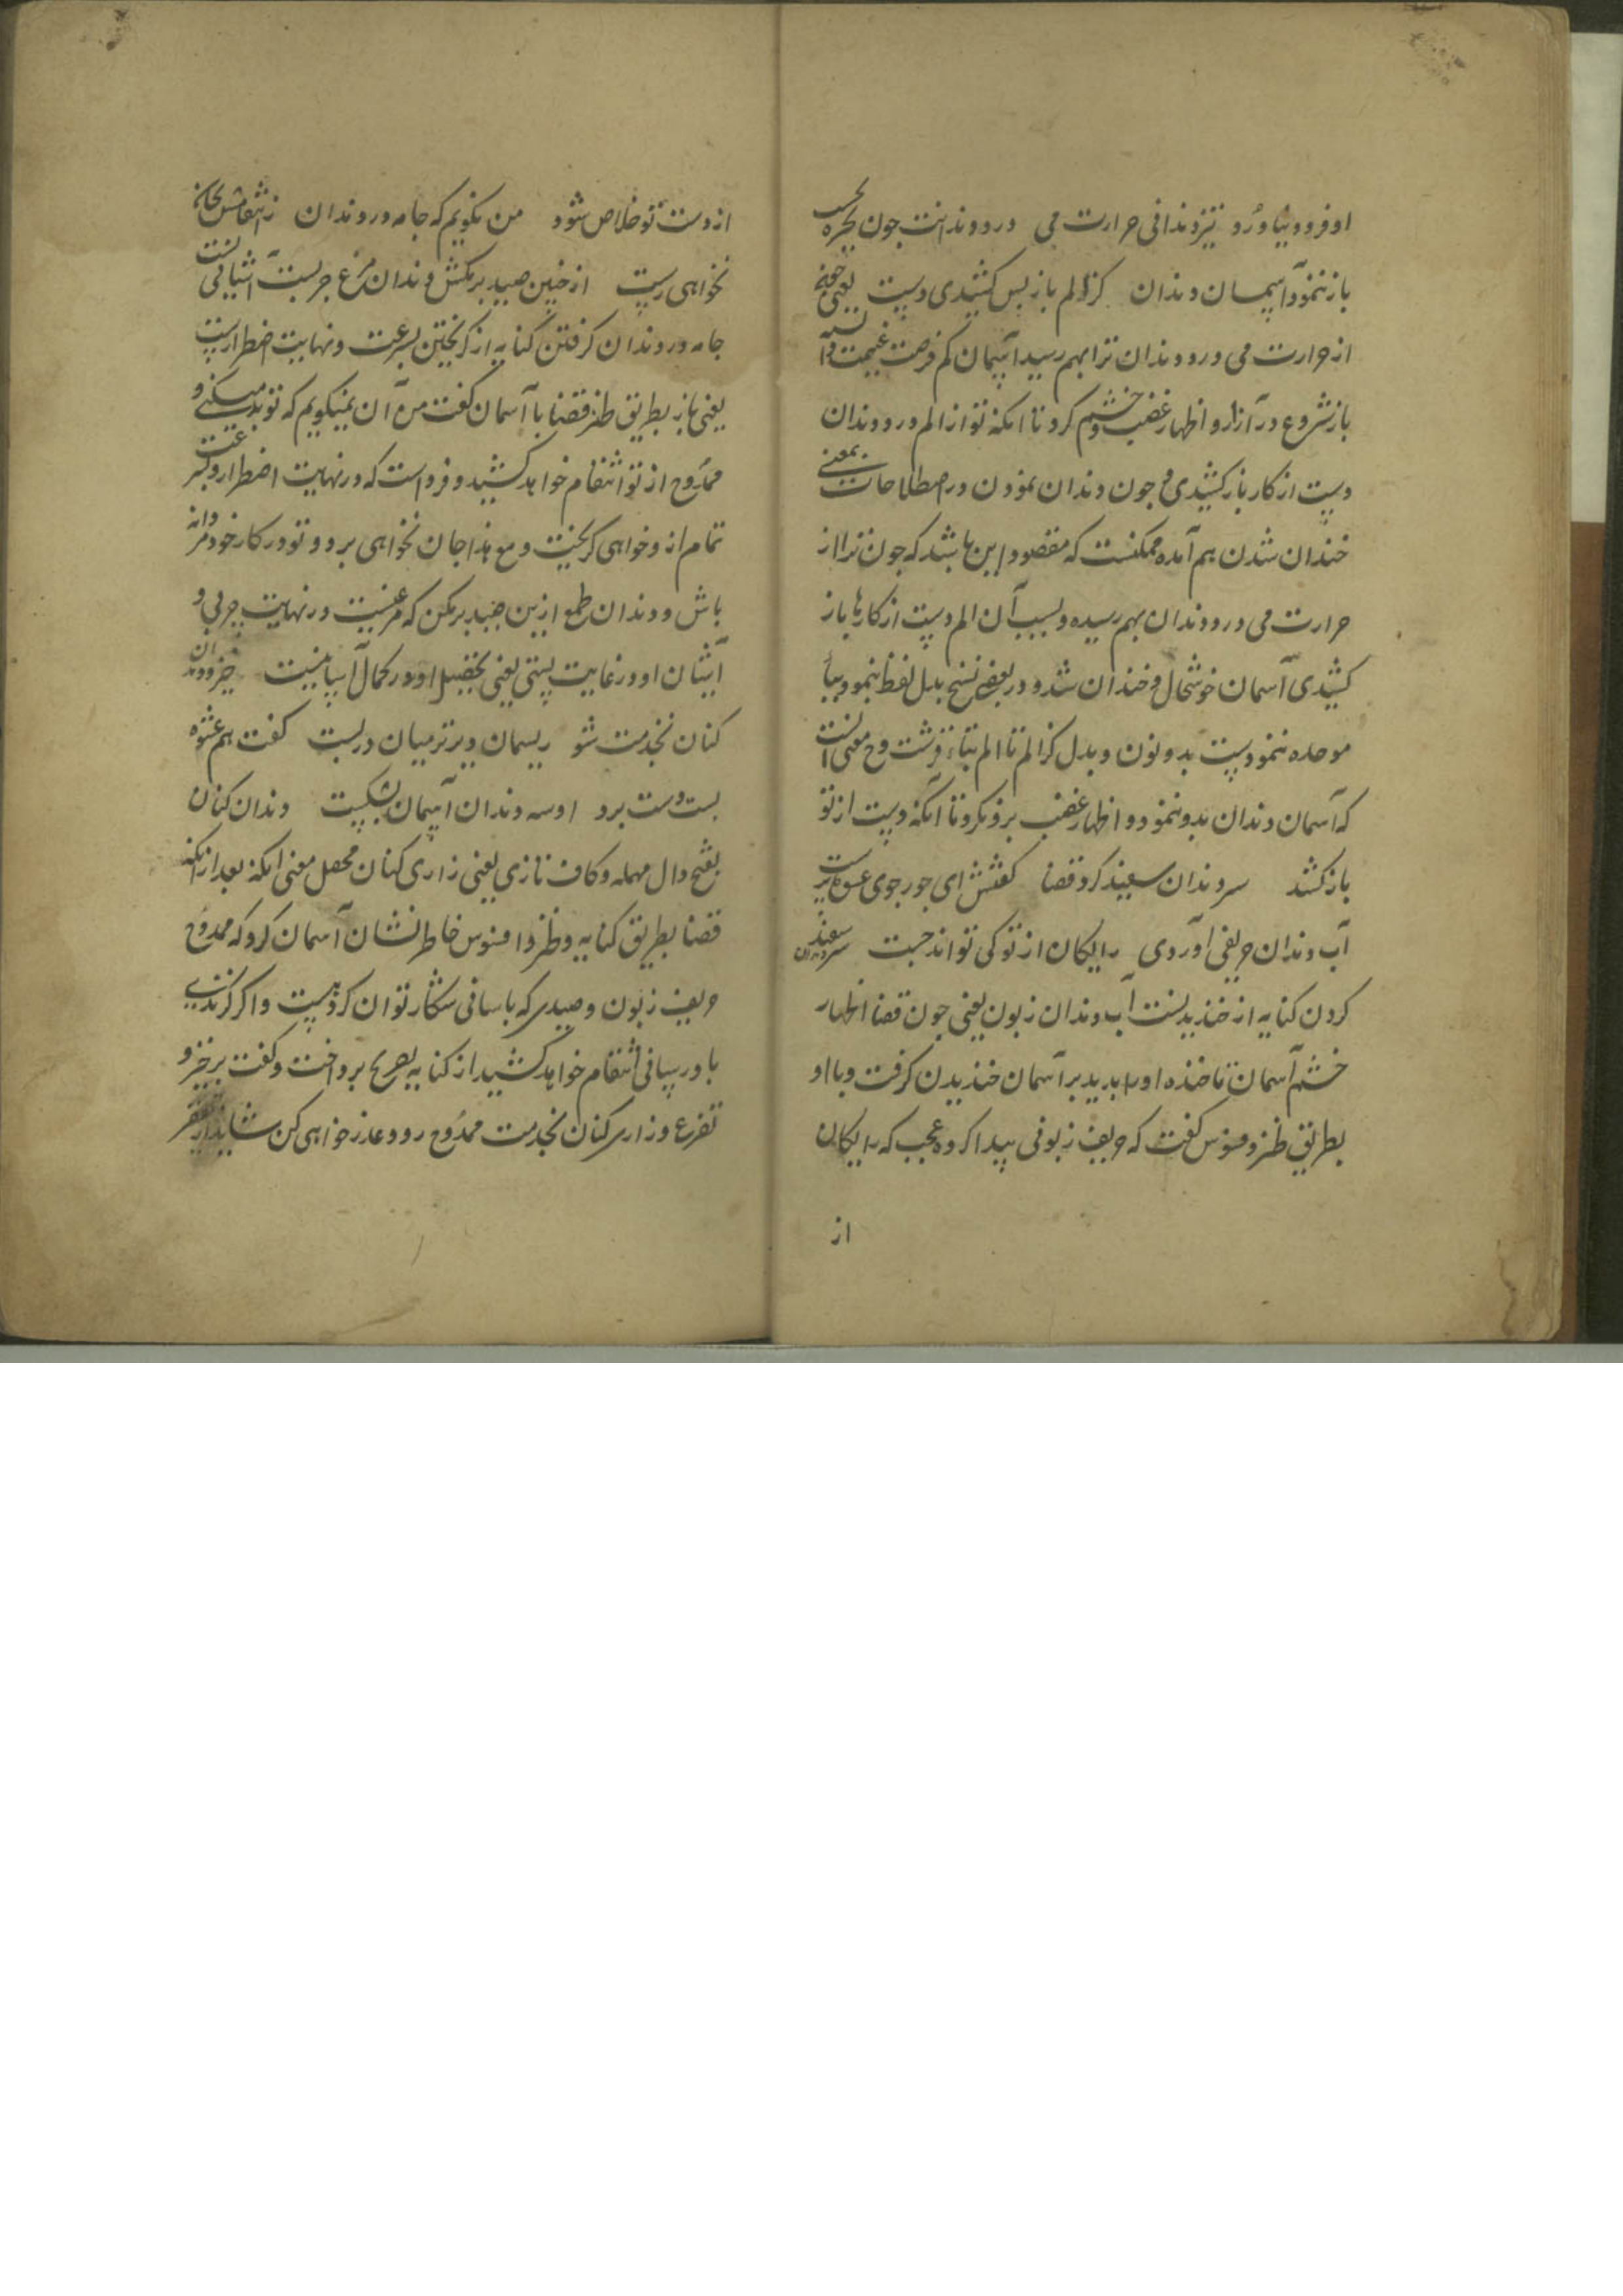 او فرود نیاورد و تیز دندانی حرارت می درد دندانت چون بحیره بحسب
باز ننمود آسمان دندان کز الم باز پس کشیدی دست یعنی چون
از حرارت می درد دندان ترا بهم رسید آسمان کم فرصت غنیمت دانسته
باز شروع در آزار و اظهار غضب و خشم کرد تا آنکه تو از الم درد دندان
دست از کار باز کشیدی و چون دندان نمودن در اصطلاحات بمعنی
خندان شدن هم آمده ممکنست که مقصود این باشد که چون ترا از
حرارت می درد دندان بهم رسیده و بسبب آن الم دست از کارها باز
کشیدی آسمان خوشحال و خندان شد و در بعضی نسخ بدل لفظ ننمود بباء
موحده ننمودست بدو نون و بدل کز الم تا الم بتاء قرشت و ح معنی آنست
که آسمان دندان بدو ننمود و اظهار غضب برو نکرد تا آنکه دست از تو
باز کشد سر دندان سفید کرد قضا گفتش ای جور جوی عشوه پرست
آب دندان حریفی آوردی رایگان از تو کی تواند جست سر دندان سفید
کردن کنایه از خندیدنست آب دندان زبون یعنی چون قضا اظهار
خشم آسمان تا خنده او را بدید بر آسمان خندیدن گرفت و با او
بطریق طنز و فسوس گفت که حریف زبونی پیدا کرده عجب که رایگان
از
از دست تو خلاص شود من نگویم که جامه در دندان ز انتقامش بجان
نخواهی رست از چنین صید برمکش دندان مرغ چربست آشیانی پست
جامه در دندان گرفتن کنایه از گریختن بسرعت و نهایت اضطرارست
یعنی باز بطریق طنز قضا با آسمان گفت من آن نمیگویم که تو بد میکنی و
ممدوح از تو انتقام خواهد کشید و فرداست که در نهایت اضطرار و سرعت
تمام ازو خواهی گریخت و مع هذا جان نخواهی برد و تو در کار خود مردانه
باش و دندان طمع ازین صید برمکن که مرغیست در نهایت چربی و
آشیان او در غایت پستی یعنی تحصیل او در کمال آسانیست خیز و دندان
کنان بخدمت شو ریسمان و برتر میان دربست گفت هم عشوه
بست و ست برو او سه دندان آسمان بشکست دندان کنان
بفتح دال مهمله و کاف تازی یعنی زاری کنان محصل معنی آنکه بعد از آنکه
قضا بطریق کنایه و طنز و افسوس خاطر نشان آسمان کرد که ممدوح
حریف زبون و صیدی که باسانی شکار توان کرد نیست و اگر گزندی
باو رسانی انتقام خواهد کشید از کنایه بصریح پرداخت و گفت برخیز و
تضرع و زاری کنان بخدمت ممدوح رو و عذر خواهی کن شاید از تقصیر